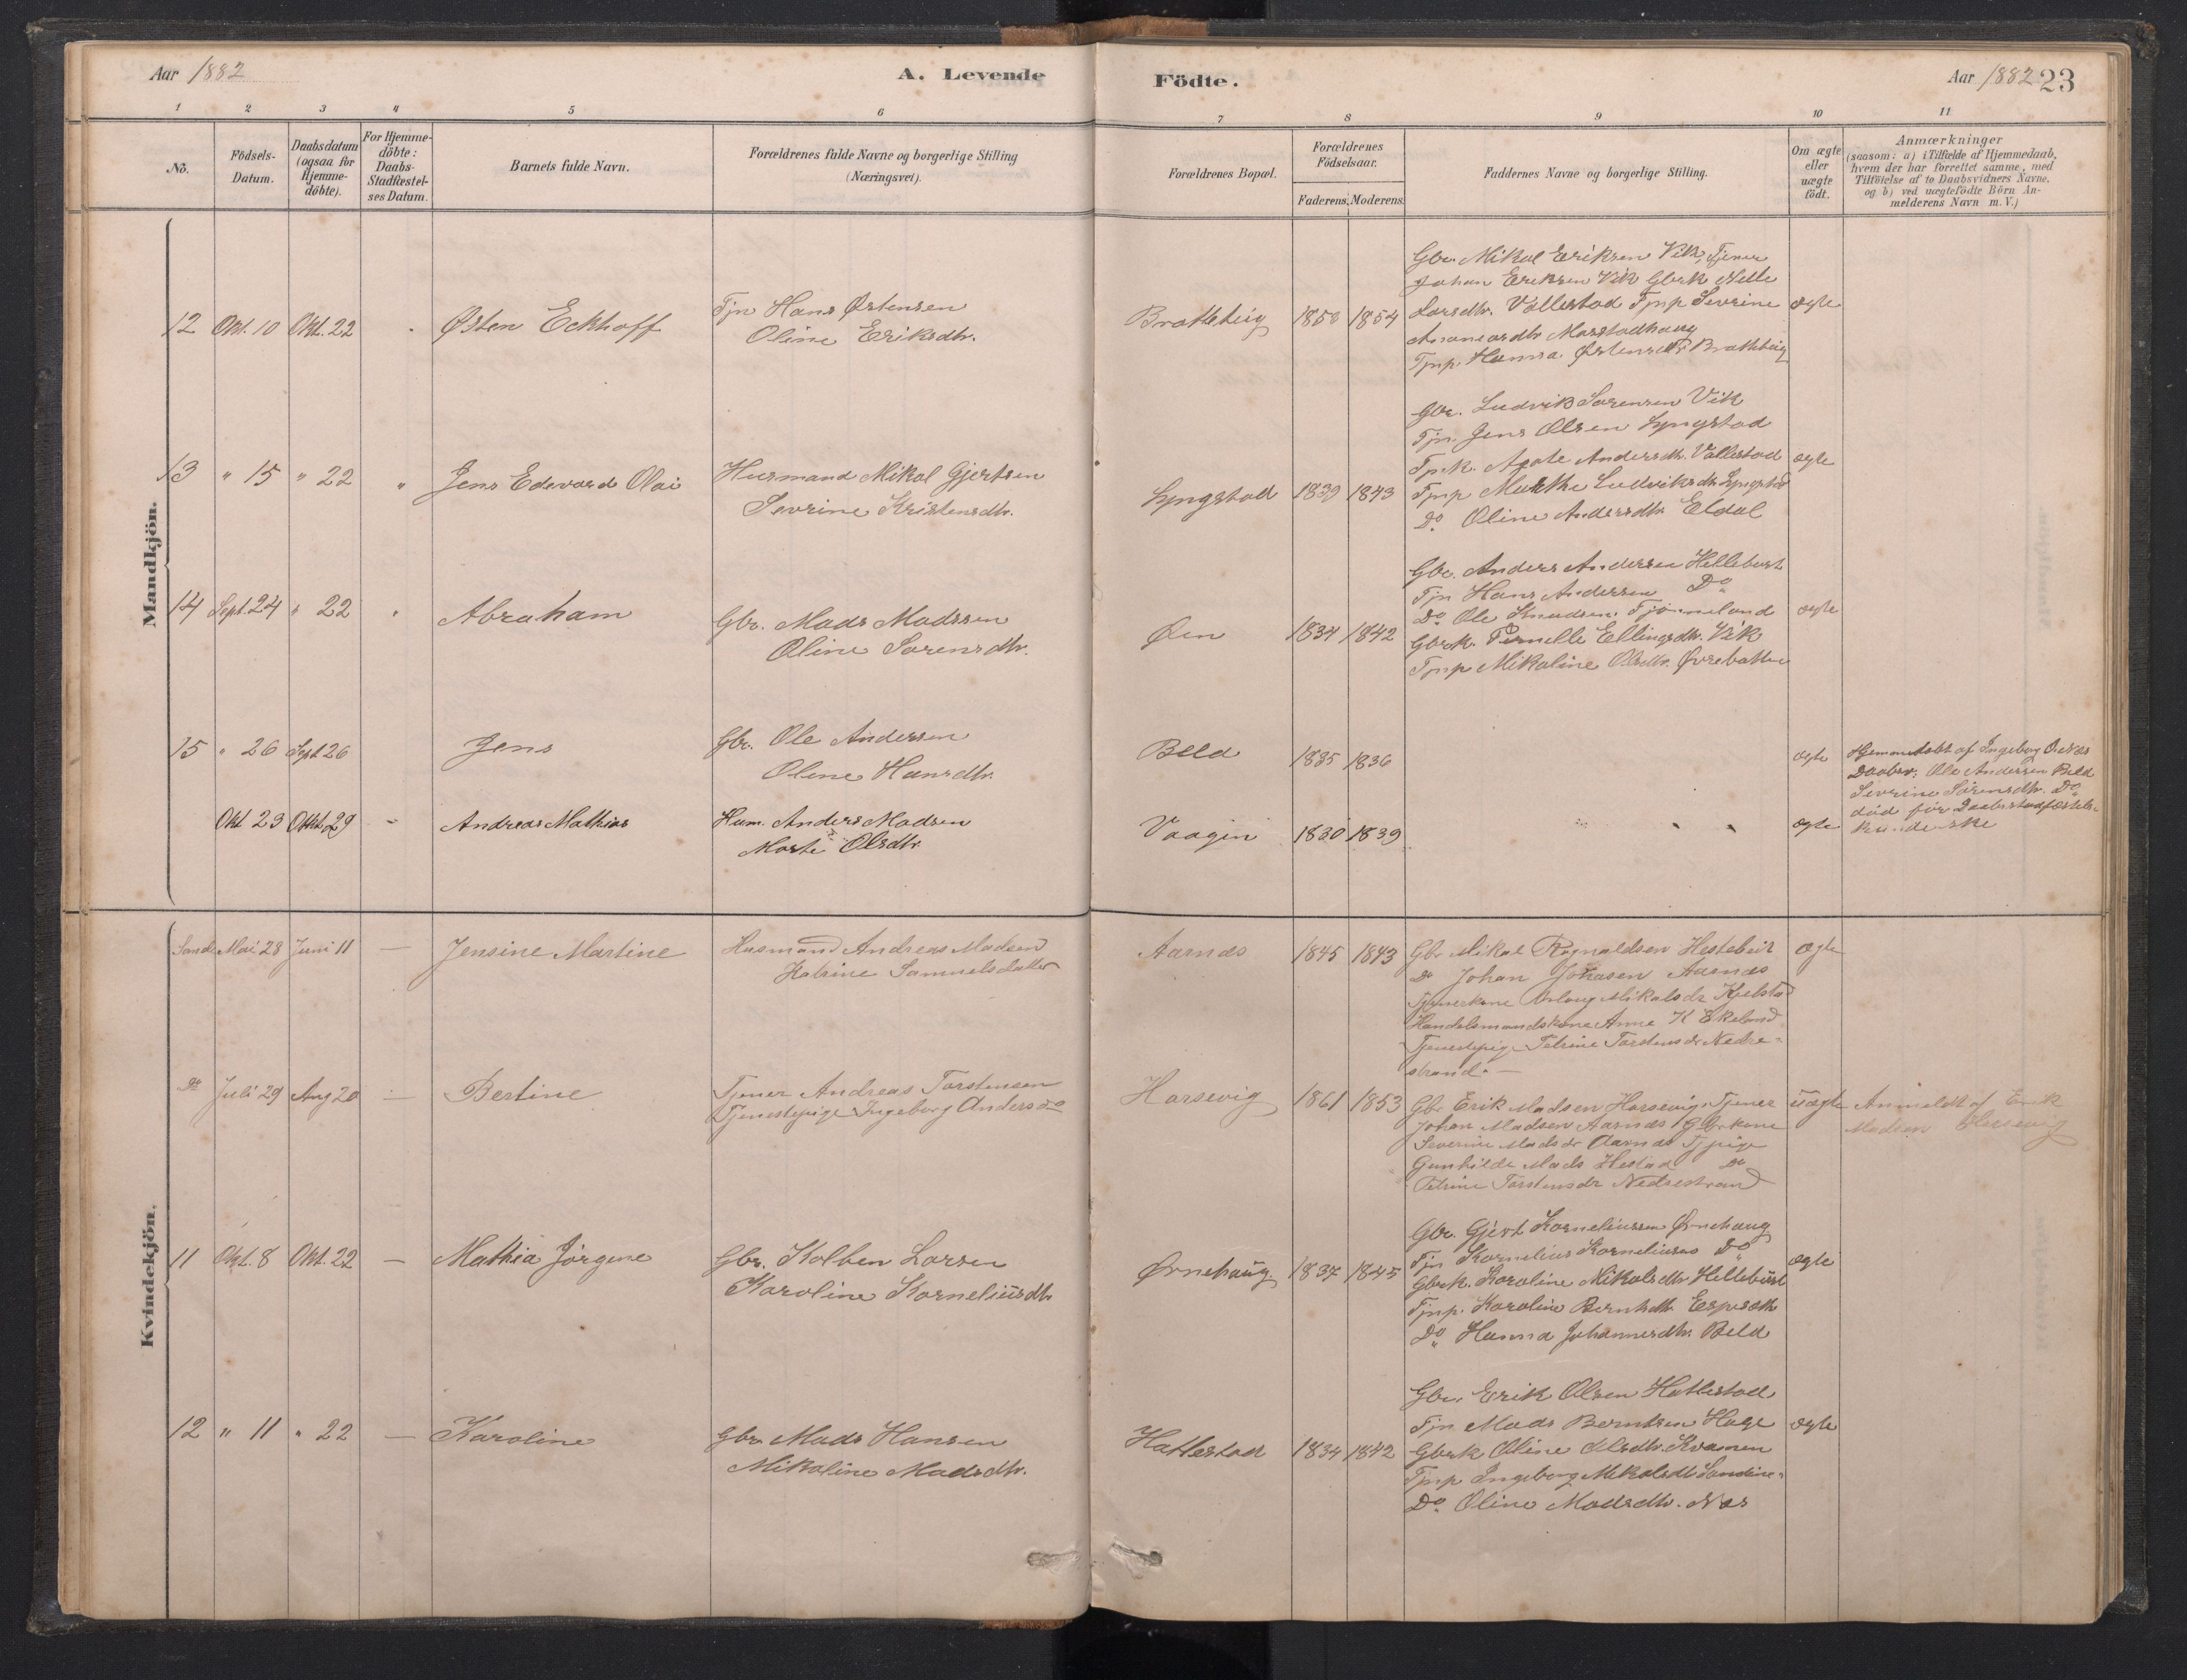 Aar 1882
A. Levende
Födte.
Aar 1882 23
1 2 3 4 5 6 7 8 9 10 11
No.
Födsels-Datum.
Daabsdatum (ogsaa for Hjemme-döbte).
For Hjemme-döbte: Daabs-Stadfæstel-ses Datum.
Barnets fulde Navn.
Forældrenes fulde Navne og borgerlige Stilling (Næringsvei).
Forældrenes Bopæl.
Forældrenes Födselsaar.
Faderens. Moderens.
Faddernes Navne og borgerlige Stilling.
Om ægte eller uægte födt.
Anmærkninger
(saasom: a) i Tilfælde af Hjemmedaab,
hvem der har forrettet samme, med
Tilföielse af to Daabsvidners Navne,
og b) ved uægtefödte Börn An-
melderens Navn m. V.)
Mandkjön.
12 Okt. 10 Okt. 22 Østen Eckhoff
Tjn Hans Østensen
Oline Eriksdtr.
Bratteteig 1858 1854
Gbr. Mikal Eriksen Vik, Tjener
Johan Eriksen Vik Gbrk Nille
Larsdtr. Vallestad Tjnp Severine
Ananiasdtr
Tjnp. Hanna Østensdtr Bratteteig
ægte
13 " 15 " 22 " Jens Edevard Olai
Husmand Mikal Gjertsen
Severine Kristensdtr.
Lyngstad 1839 1843
Gbr. Ludvik Sørensen Vik
Tjn. Jens Olsen Lyngstad
Tjnk. Agate Andersdtr. Vallestad
Tjnp Marthe Ludviksdtr Lyngstad
Do Oline Andersdtr. Eldal
ægte
14 Sept. 24 " 22 Abraham
Gbr. Mads Madssen
Oline Sørensdtr.
Øen 1834 1842
Gbr. Anders Andersen Hellebust
Tjn Hans Andersen Do
Do Ole Knudsen
Gbrk. Pernelle Ellingsdtr. Vik
Tjnp Mikaline Olsdtr. Øvrebotten
ægte
15 " 26 Sept 26 Jens
Gbr. Ole Andersen
Oline Hansdtr.
Beld 1835 1836
ægte
Hjemmedøbt af Ingeborg O. Næs
Daabsv. Ole Andersen Beld
Severine Sørensdtr. Do
død før Daabsstadfæstels-
kunde ske
Okt 23 Oktb. 29 - Andreas Mathias
Husm. Anders Madsen
Marte Olsdtr.
Vaagen 1830 1839
ægte
Kvindekjön.
Sande Mai 28 Juni 11 — Jensine Martine
Husmand Andreas Madsen
Katrine Samuelsdatter
Aarnæs 1845 1843
Gbr Mikal Ragnaldsen
Do Johan Johasen Aarnæs
Tjenerkone Mikalsdr Kjelstad
Handelsmandskone Anne K Ekeland
Tjenestepige Petrine Torstensdr Nedre-
strand. —
ægte
Do Juli 29 Aug 20 — Bertine
Tjener Andreas Torstensen
Tjenestepige Ingeborg Andersdr
Horsevig 1861 1853
Gbr Erik Madsen Horsevig, Tjener
Johan Madsen Aarnæs, Gbrkone
Severine Madsdr Aarnæs Tjpige
Gunhilde Mads Hestad Do
Petrine Torstensdr Nedrestrand
uægte
Anmeldt af Erik
Madsen Horsevig
11 Okt. 8 Okt. 22 — Mathia Jørgine
Gbr. Kolben Larsen
Karoline Korneliüsdtr
Ørnehaug 1837 1845
Gbr. Gjert Korneliussen Ørnehaug
Tjn Kornelius Korneliusen Do
Gbrk. Karoline Mikalsdtr Hellebüst
Tjnp. Karoline Berntsdtr. Espeseth
Do Hanna Johannesdtr. Beld
ægte
12 " 11 " 22 — Karoline
Gbr. Mads Hansen
Mikaline Madsdtr.
Hatlestad 1834 1842
Gbr. Erik Olsen Hatlestad
Tjn Mads Berntsen Hage
Gbrk Oline Olsdtr. Kvamen
Tjnp Ingeborg Mikalsdtr
Do Oline Madsdtr. Næs
ægte